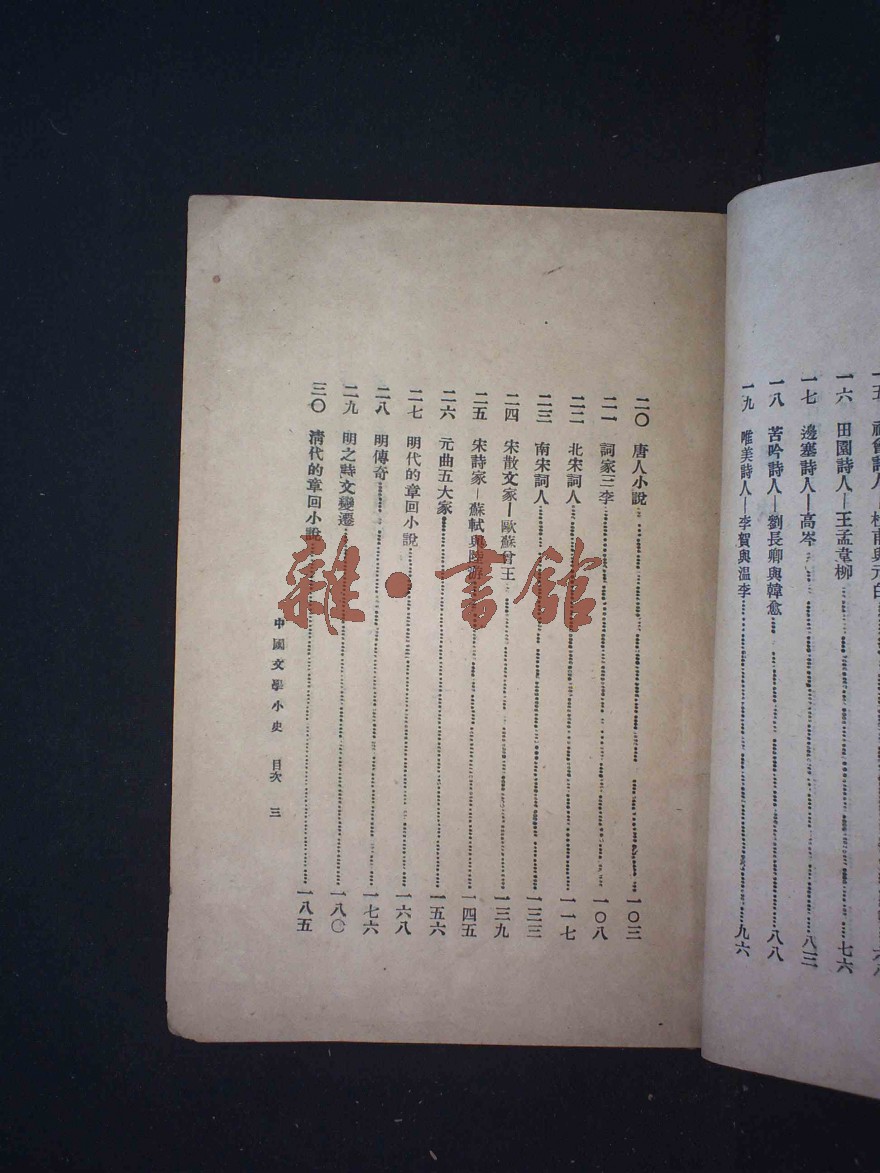 一六 田園詩人—王孟韋柳 七六
一七 邊塞詩人—高岑 八三
一八 苦吟詩人—劉長卿與韓愈 八八
一九 唯美詩人—李賀與溫李 九六
二〇 唐人小說 一〇三
二一 詞家三李 一〇八
二二 北宋詞人 一一七
二三 南宋詞人 一三三
二四 宋散文家—歐蘇曾王 一三九
二五 宋詩家—蘇軾與陸游 一四五
二六 元曲五大家 一五六
二七 明代的章回小說 一六八
二八 明傳奇 一七六
二九 明之時文變遷 一八〇
三〇 清代的章回小說 一八五
中國文學小史 目次 三
雜·書館